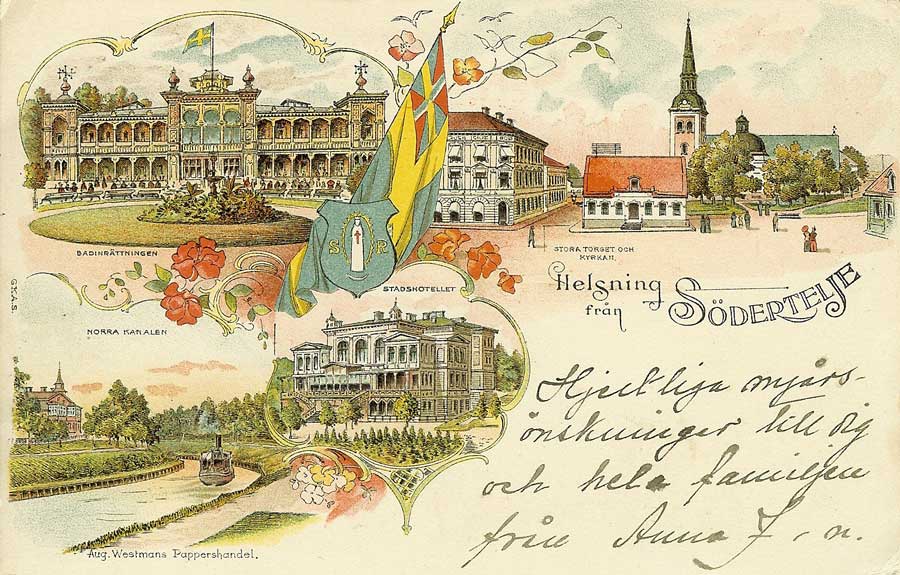 BADINRÄTTNINGEN
STORA TORGET OCH
KYRKAN.
S R
STADSHOTELLET
G.K.A.S.
NORRA KANALEN
Helsning
från
SÖDERTELJE
Hjertliga nyårs-
önskningar till dig
och hela familjen
från Anna J-n.
Aug. Westmans Pappershandel.